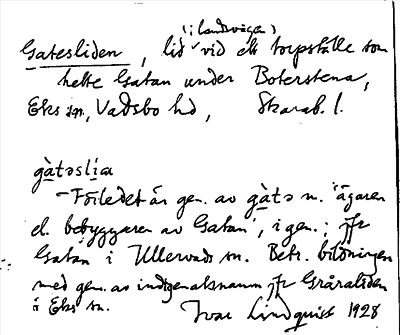 (i landsvägen)
Gatesliden, lid vid ett torpställe som
hette Gatan under Boterstena,
Eks sn, Vadsbo hd, Skarab. l.
gàtəslía
- Förledet är gen. av gàtə m. 'ägaren
el. bebyggaren av Gatan', i gen.; jfr
Gatan i Ullervads sn. Betr. bildningen
med gen. av indgenatsnamn jfr Gråraliden
i Eks sn. Ivar Lindquist 1928